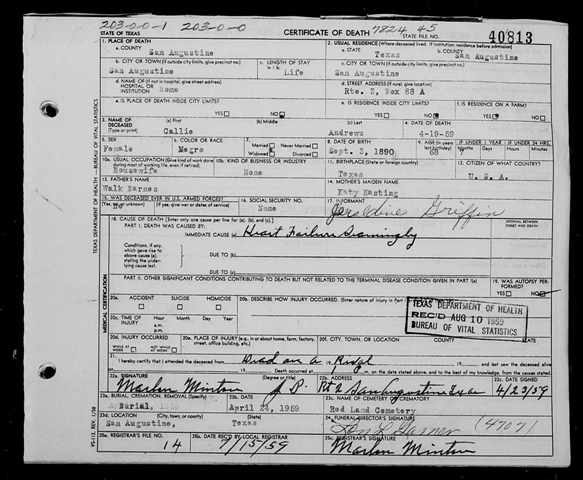 203-0-0-1 203-0-0 7824 45
STATE OF TEXAS CERTIFICATE OF DEATH STATE FILE NO. 40813
1. PLACE OF DEATH 2. USUAL RESIDENCE (Where deceased lived. If institution: residence before admission)
a. COUNTY San Augustine a. STATE Texas b. COUNTY San Augustine
b. CITY OR TOWN (If outside city limits, give precinct no.) c. LENGTH OF STAY c. CITY OR TOWN (If outside city limits, give precinct no.)
San Augustine Life San Augustine
d. NAME OF (If not in hospital, give street address) HOSPITAL OR INSTITUTION None d. STREET ADDRESS (If rural, give location) Rte. 2, Box 68 A
e. IS PLACE OF DEATH INSIDE CITY LIMITS? YES NO e. IS RESIDENCE INSIDE CITY LIMITS? YES NO f. IS RESIDENCE ON A FARM? YES NO
3. NAME OF DECEASED (Type or print) (a) First (b) Middle (c) Last 4. DATE OF DEATH
Callie Andrews 4-19-59
5. SEX 6. COLOR OR RACE 7. Married Never Married Widowed Divorced 8. DATE OF BIRTH 9. AGE (In years last birthday) IF UNDER 1 YEAR IF UNDER 24 HRS.
Female Negro Sept. 5, 1890 68 7
10a. USUAL OCCUPATION (Give kind of work done during most of working life, even if retired) 10b. KIND OF BUSINESS OR INDUSTRY 11. BIRTHPLACE (State or foreign country) 12. CITIZEN OF WHAT COUNTRY?
Housewife None Texas U. S. A.
13. FATHER'S NAME 14. MOTHER'S MAIDEN NAME
Walk Barnes Katy Hasting
15. WAS DECEASED EVER IN U.S. ARMED FORCES? 16. SOCIAL SECURITY NO. 17. INFORMANT
(Yes, no, or unknown) (If yes, give war or dates of service) None Jeraldine Griffin
18. CAUSE OF DEATH (Enter only one cause per line for (a), (b), and (c).) INTERVAL BETWEEN ONSET AND DEATH
PART I. DEATH WAS CAUSED BY:
IMMEDIATE CAUSE (a) Heart Failure Seamingly
Conditions, if any, which gave rise to above cause (a), stating the underlying cause last. DUE TO (b)
DUE TO (c)
PART II. OTHER SIGNIFICANT CONDITIONS CONTRIBUTING TO DEATH BUT NOT RELATED TO THE TERMINAL DISEASE CONDITION GIVEN IN PART I(a) 19. WAS AUTOPSY PERFORMED? YES NO
20a. ACCIDENT SUICIDE HOMICIDE 20b. DESCRIBE HOW INJURY OCCURRED. (Enter nature of injury in Part I
TEXAS DEPARTMENT OF HEALTH
REC'D AUG 10 1959
BUREAU OF VITAL STATISTICS
20c. TIME OF INJURY Hour Month Day Year a.m. p.m.
20d. INJURY OCCURRED WHILE AT WORK NOT WHILE AT WORK 20e. PLACE OF INJURY (e.g. in or about home, farm, factory, street, office building, etc.) 20f. CITY, TOWN, OR LOCATION COUNTY STATE
21. I hereby certify that I attended the deceased from Dead on a and last saw the deceased alive
Death occurred at m. on the date stated above, and to the best of my knowledge, from the causes stated.
22a. SIGNATURE (Degree or title) 22b. ADDRESS 22c. DATE SIGNED
Marlon Minton J P. Rt 2 San Augustine Texas 4/23/59
23a. BURIAL, CREMATION, REMOVAL (Specify) 23b. DATE 23c. NAME OF CEMETERY OR CREMATORY
Burial, April 24, 1959 Red Land Cemetery
23d. LOCATION (City, town, or county) (State) 24. FUNERAL DIRECTOR'S SIGNATURE
San Augustine, Texas Garner (4707)
25a. REGISTRAR'S FILE NO. 25b. DATE REC'D BY LOCAL REGISTRAR 25c. REGISTRAR'S SIGNATURE
14 7/15/59 Marlon Minton
TEXAS DEPARTMENT OF HEALTH — BUREAU OF VITAL STATISTICS
MEDICAL CERTIFICATION
VS-112, REV. 1/58